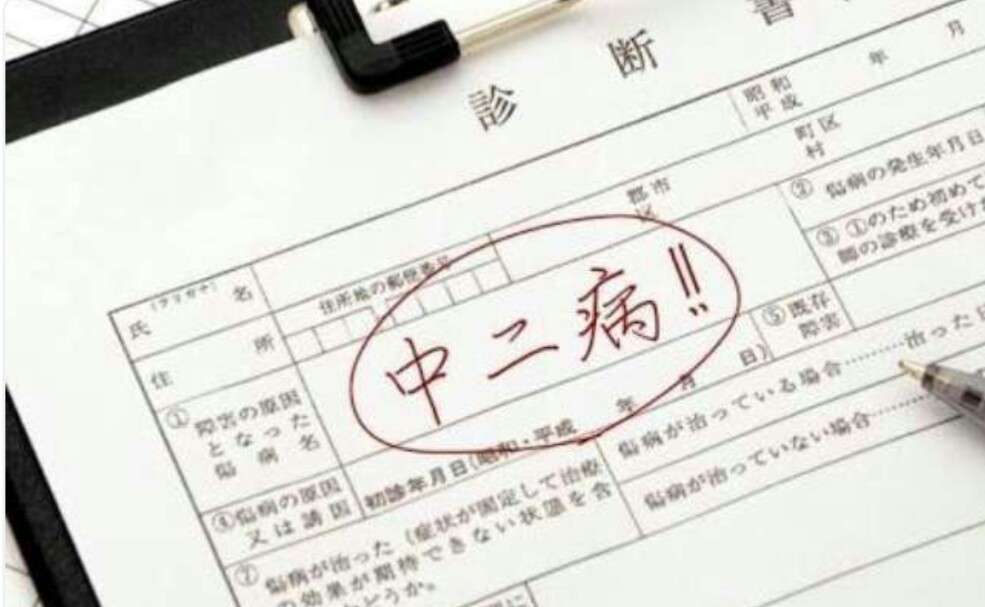 診断書
昭和
平成
年 月
(フリガナ)
氏 名
住所地の郵便番号
郡市
区
町区
村
住 所
中二病!!
① 障害の原因
となった
傷病名
② 傷病の発生年月日
③ ①のため初めて
師の診療を受け
④ 傷病の原因
又は誘因
初診年月日(昭和・平成 年 月 日)
⑤ 既存
障害
⑦ 傷病が治った(症状が固定して治療
の効果が期待できない状態を含
かどうか。
傷病が治っている場合………治った日
傷病が治っていない場合………